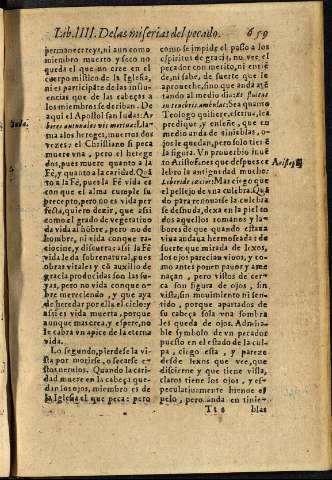 Lib. IIII. De las miserias del pecado. 659
permanecreys, ni aun como
miembro muerto y seco no
queda el que un cree en el
cuerpo mistico de la Iglesia,
ni es participante de las influ-
encias que de la cabeça a
los miembros se deriban. De
aqui el Apostol san Iudas: Ar-
bores autumnales bis mortuae: Lla-
Iudæ.
ma a los hereges, muertos dos
vezes: el Christiano si peca
muere vna, pero el herege
dos, pues muere quanto a la
Fè, y quanto a la caridad. Quã
to a la Fè, pues la Fè vida es
con que el alma cumple su
precepto, pero no es vida per
fecta, quiero dezir, que assi
como al grado de vegetatiuo
da vida al hõbre, pero no de
hombre, ni vida conque ra-
ciocine, y discurra; assi la Fè
vida le da sobrenatural, pues
obras vitales y cõ auxilio de
gracia producidas son las su-
yas, pero no vida conque o-
bre merecienno, y que aya
de heredar por ella el cielo: y
assi es vida muerta, porque
aunque mas crea, y espere, no
le cabra vn apice de la eterna
vida.
Lo segundo, pierdese la vi-
sta por morirse, o secarse e-
stos neruios. Quando la cari-
dad muere en la cabeça que-
dan los ojos, miembro es de
la Iglesia el que peca: pero
como se impide el passo a los
espiritus de gracia, no vee el
pecador con merito, ni entiẽ
de, ni sabe, de suerte que le
aproueche, sino que anda atẽ
tando el medio dia:
Sea quanto
Teologo quisiere, escriua, lea
predique, y enseñe, que en
medio anda de tinieblas, o-
jos le quedan, pero solo tiene
la figura. Vn prouerbio inuẽ
to Aristofanes que despues ce
Aristoph.
lebro la antiguedad mucho:
Mas ciego que
el pellejo de vna culebra. Quã
do para renouarse la culebra
se desnuda, dexa en la piel to
dos aquellos romanos y la-
bores de que quando estaua
viua andaua hermoseada: de
suerte que mirada de lexos,
los ojos parecian viuos, y co-
mo antes ponen pauor y ame
naçan, pero vistos de cerca
son figura de ojos, sin
vista, sin mouimiento ni sen-
tido, porque apartados de
su cabeça sola vna sombra
les queda de ojos. Admira-
ble symbolo de vn pecador
puesto en el estado de la cul-
pa, ciego esta, y parece
desde lexos que vee, que
discierne y que tiene vista,
claros tiene los ojos, y es-
peculatiuamente hiende el
pelo, pero anda en tinie-
Tt 2 blas